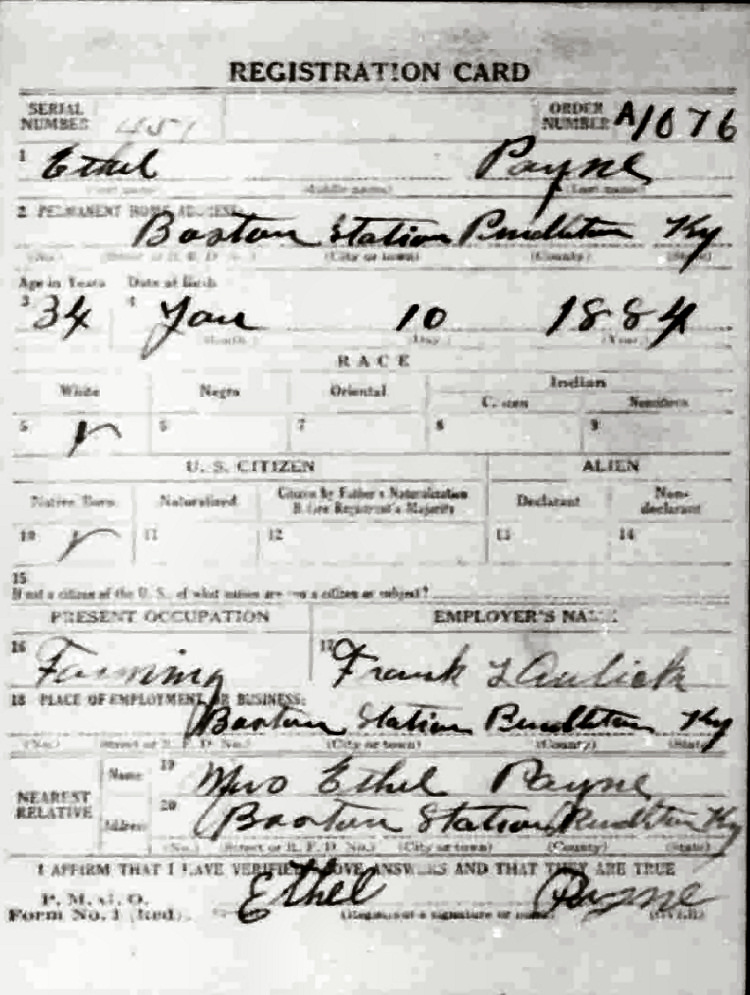 REGISTRATION CARD
SERIAL NUMBER 451 ORDER NUMBER A1076
1 Ethel Payne
(First name) (Middle name) (Last name)
2 PERMANENT HOME ADDRESS:
Boston Station Pendleton Ky
(No.) (Street or R. F. D. No.) (City or town) (County) (State)
Age in Years Date of Birth
3 34 4 Jan 10 1884
(Month) (Day) (Year)
RACE
White Negro Oriental Indian
Citizen Noncitizen
5 6 7 8 9
U. S. CITIZEN ALIEN
Native Born Naturalized Citizen by Father's Naturalization Before Registrant's Majority Declarant Non-declarant
10 11 12 13 14
15
If not a citizen of the U. S., of what nation are you a citizen or subject?
PRESENT OCCUPATION EMPLOYER'S NAME
16 Farming 17 Frank L Aulick
18 PLACE OF EMPLOYMENT OR BUSINESS:
Boston Station Pendleton Ky
(No.) (Street or R. F. D. No.) (City or town) (County) (State)
NEAREST RELATIVE
Name 19 Mrs Ethel Payne
Address 20 Boston Station Pendleton Ky
(No.) (Street or R. F. D. No.) (City or town) (County) (State)
I AFFIRM THAT I HAVE VERIFIED ABOVE ANSWERS AND THAT THEY ARE TRUE
P. M. G. O.
Form No. 1 (Red) Ethel Payne
(Registrant's signature or mark) (OVER)